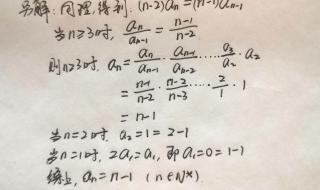 另解:同理,得到:(n-2)aₙ=(n-1)aₙ₋₁
当n≥3时, aₙ/aₙ₋₁ = (n-1)/(n-2)
则n≥3时, aₙ = aₙ/aₙ₋₁ · aₙ₋₁/aₙ₋₂ ······ a₃/a₂ · a₂
= (n-1)/(n-2) · (n-2)/(n-3) ····· 2/1 · 1
= n-1
当n=2时, a₂=1=2-1
当n=1时, 2a₁=a₁, 即a₁=0=1-1
综上, aₙ=n-1 (n∈N*)